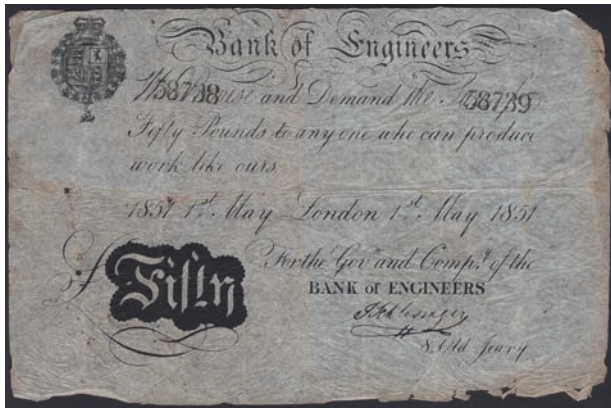 Bank of Engineers
58738 and Demand the 58739
Fifty Pounds to any one who can produce
work like ours.
1851 1st May London 1st May 1851
£ Fifty
For the Govr and Compy of the
BANK of ENGINEERS
8 Old Jewry